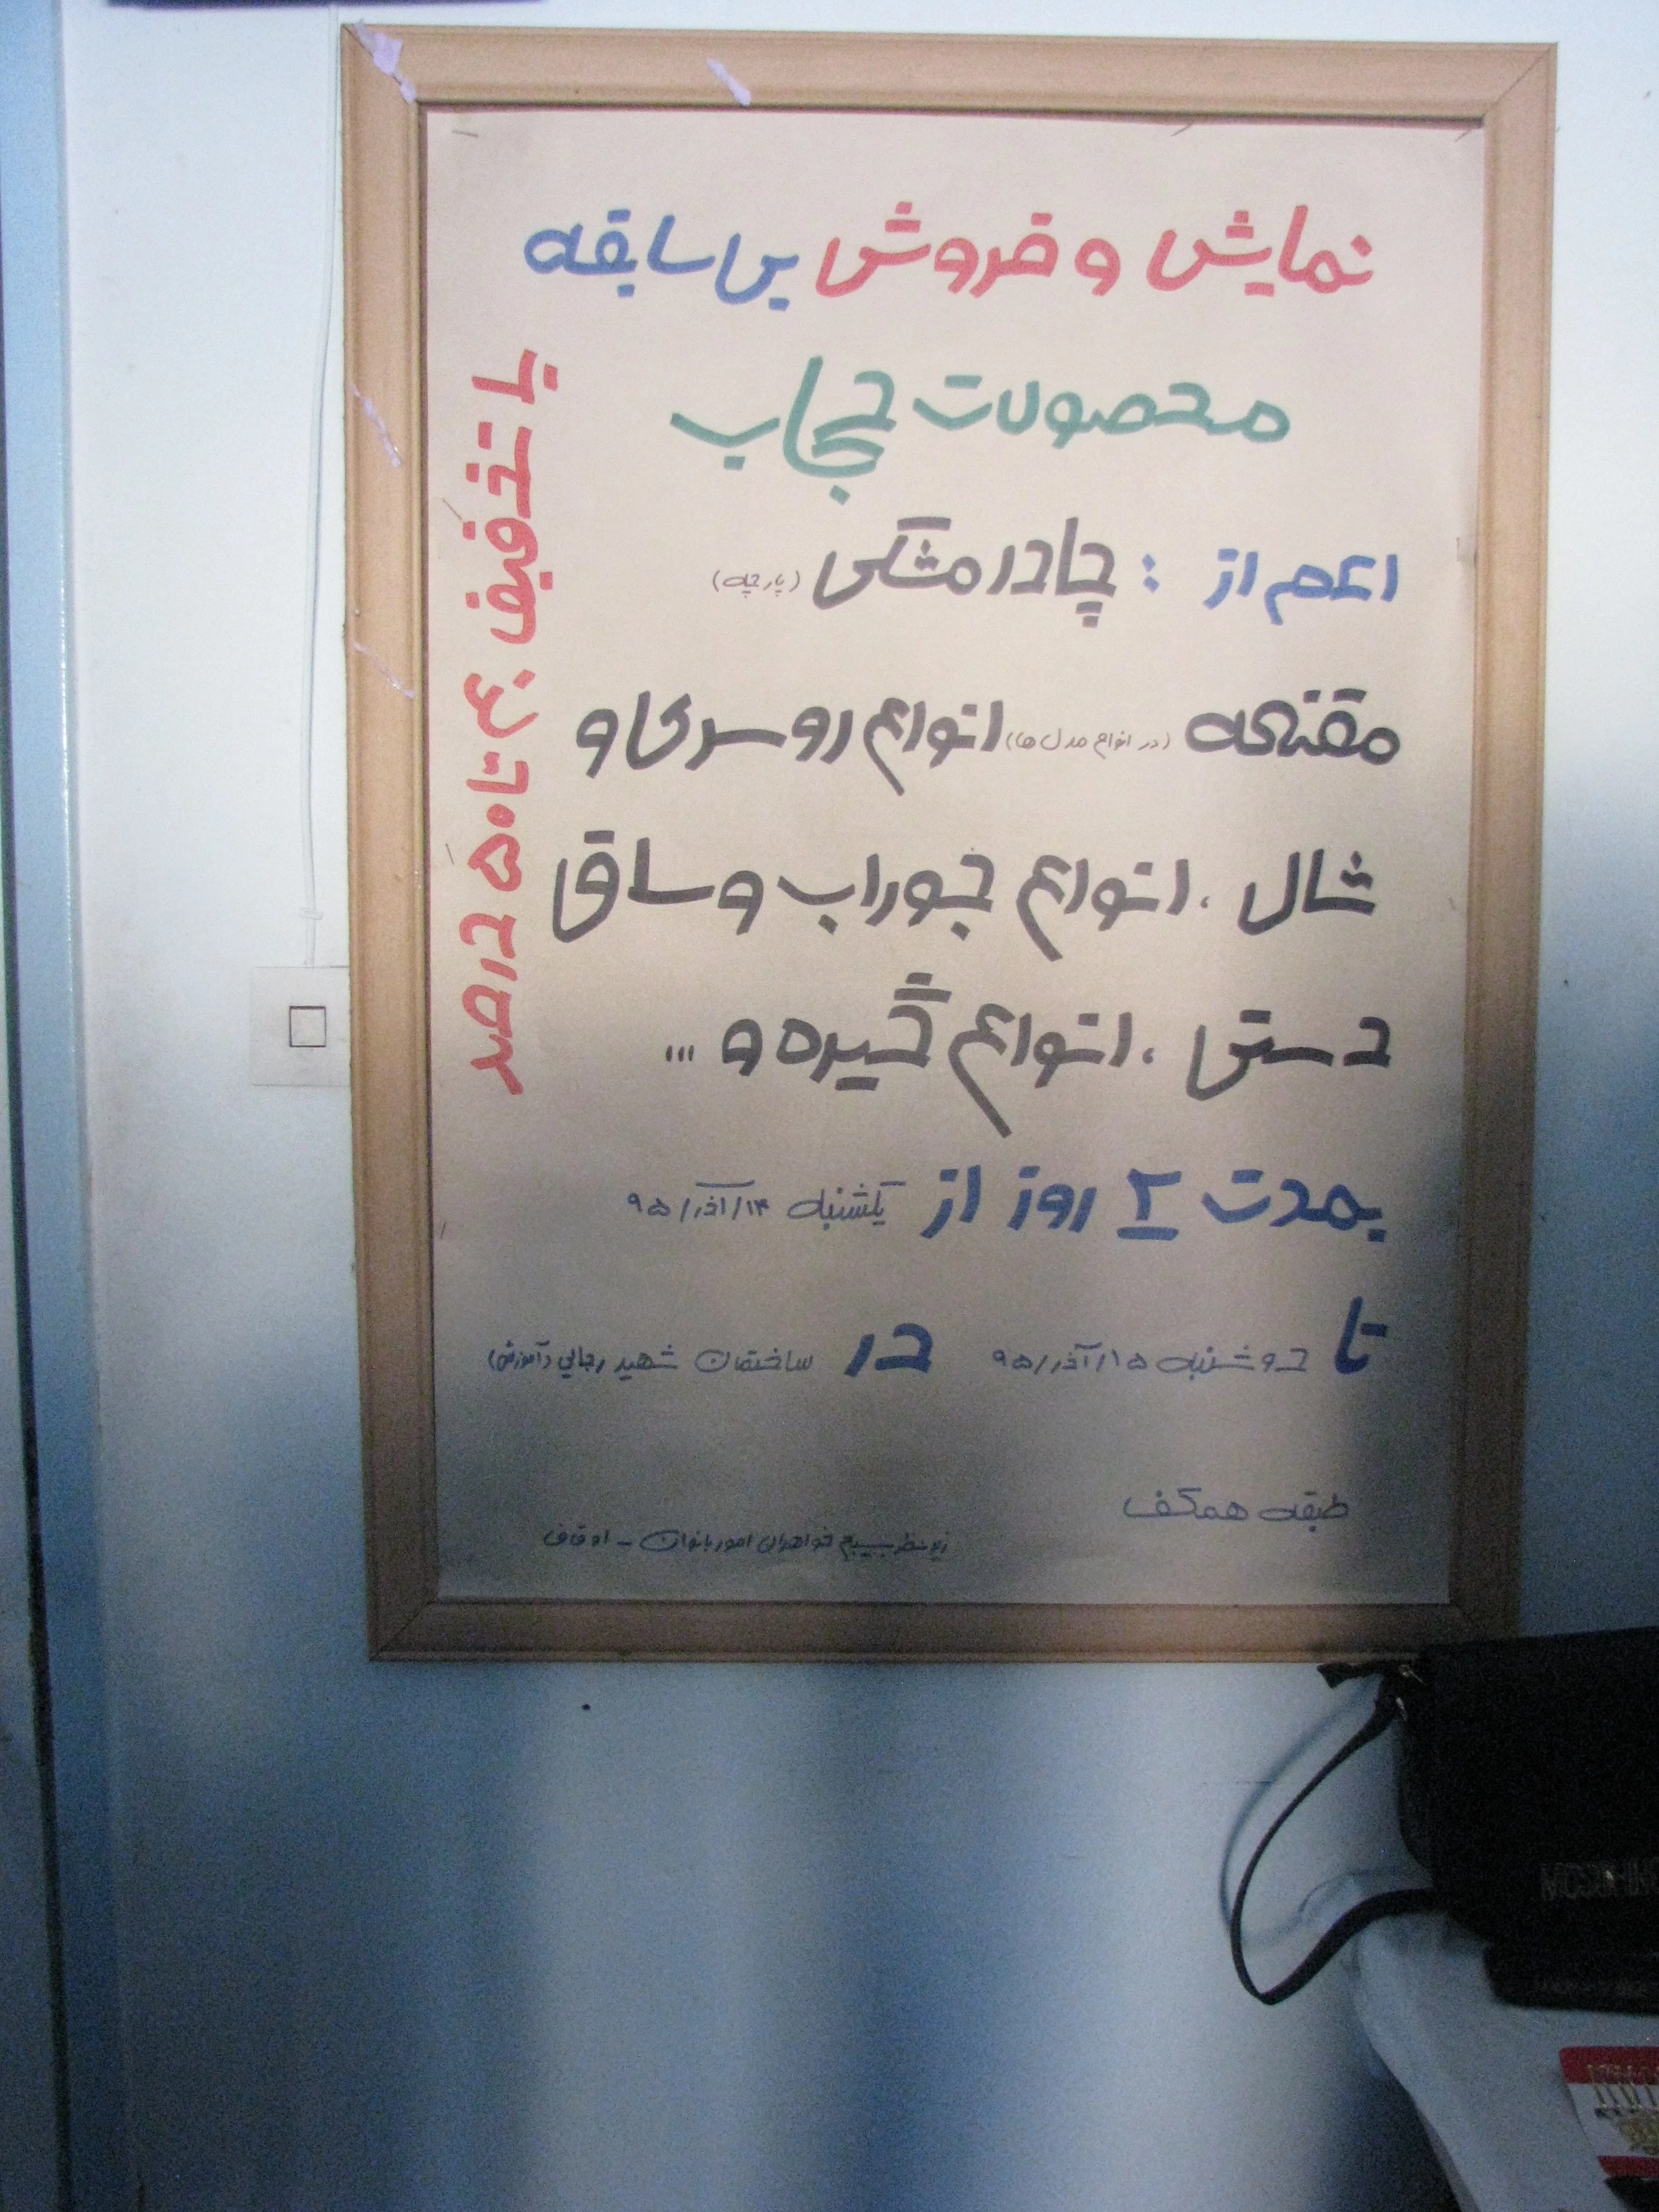 نمایش و فروش بی سابقه
محصولات حجاب
اعم از : چادر مشکی (پارچه)
مقنعه (در انواع مدل ها) انواع روسری و
شال ، انواع جوراب و ساق
دستی ، انواع گیره و ...
بمدت ۲ روز از یکشنبه ۱۴/آذر/۹۵
تا دوشنبه ۱۵/آذر/۹۵ در ساختمان شهید رجایی (آموزش)
طبقه همکف
زیر نظر بسیج خواهران امور بانوان - اوقاف
با تخفیف ۴۰ تا ۵۰ درصد
MOSCHINO